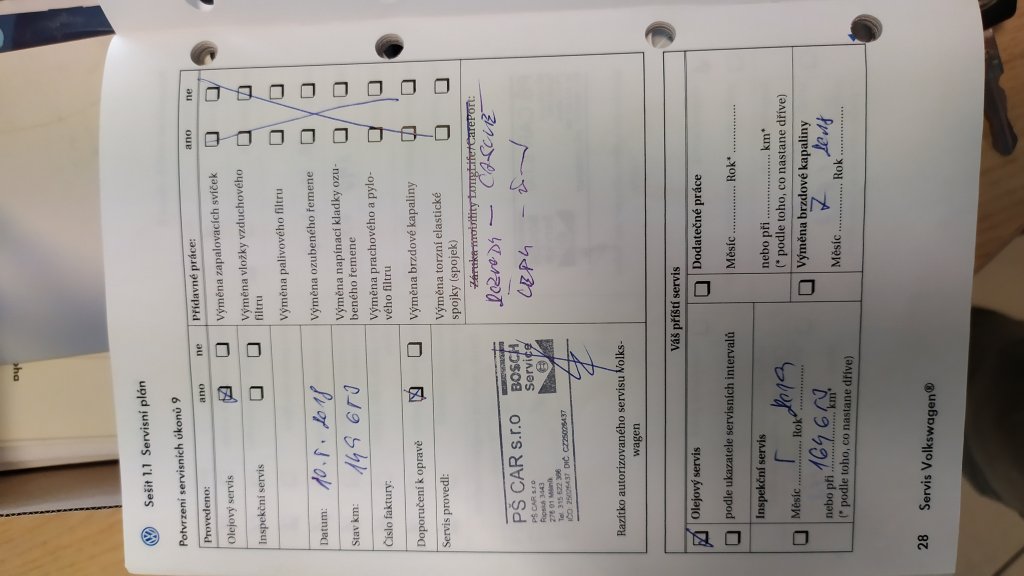 Sešit 1.1 Servisní plán
Potvrzení servisních úkonů 9
Provedeno: ano ne
Olejový servis
Inspekční servis
Datum: 10. 5. 2018
Stav km:
Číslo faktury:
Doporučení k opravě
Servis provedl:
PŠ CAR s.r.o
BOSCH
Service
PŠ CAR s.r.o
276 01 Mělník
Tel. 315 622 366
Razítko autorizovaného servisu Volks-
wagen
Přídavné práce: ano ne
Výměna zapalovacích svíček
Výměna vložky vzduchového
filtru
Výměna palivového filtru
Výměna ozubeného řemene
Výměna napínací kladky ozu-
beného řemene
Výměna prachového a pylo-
vého filtru
Výměna brzdové kapaliny
Výměna torzní elastické
spojky (spojek)
Záruka mobility LongLife/CarePort:
Váš příští servis
Olejový servis
podle ukazatele servisních intervalů
Inspekční servis
Měsíc 5 Rok 2019
nebo při km*
(* podle toho, co nastane dříve)
Dodatečné práce
Měsíc Rok*
nebo při km*
(* podle toho, co nastane dříve)
Výměna brzdové kapaliny
Měsíc 7 Rok 2018
28 Servis Volkswagen®